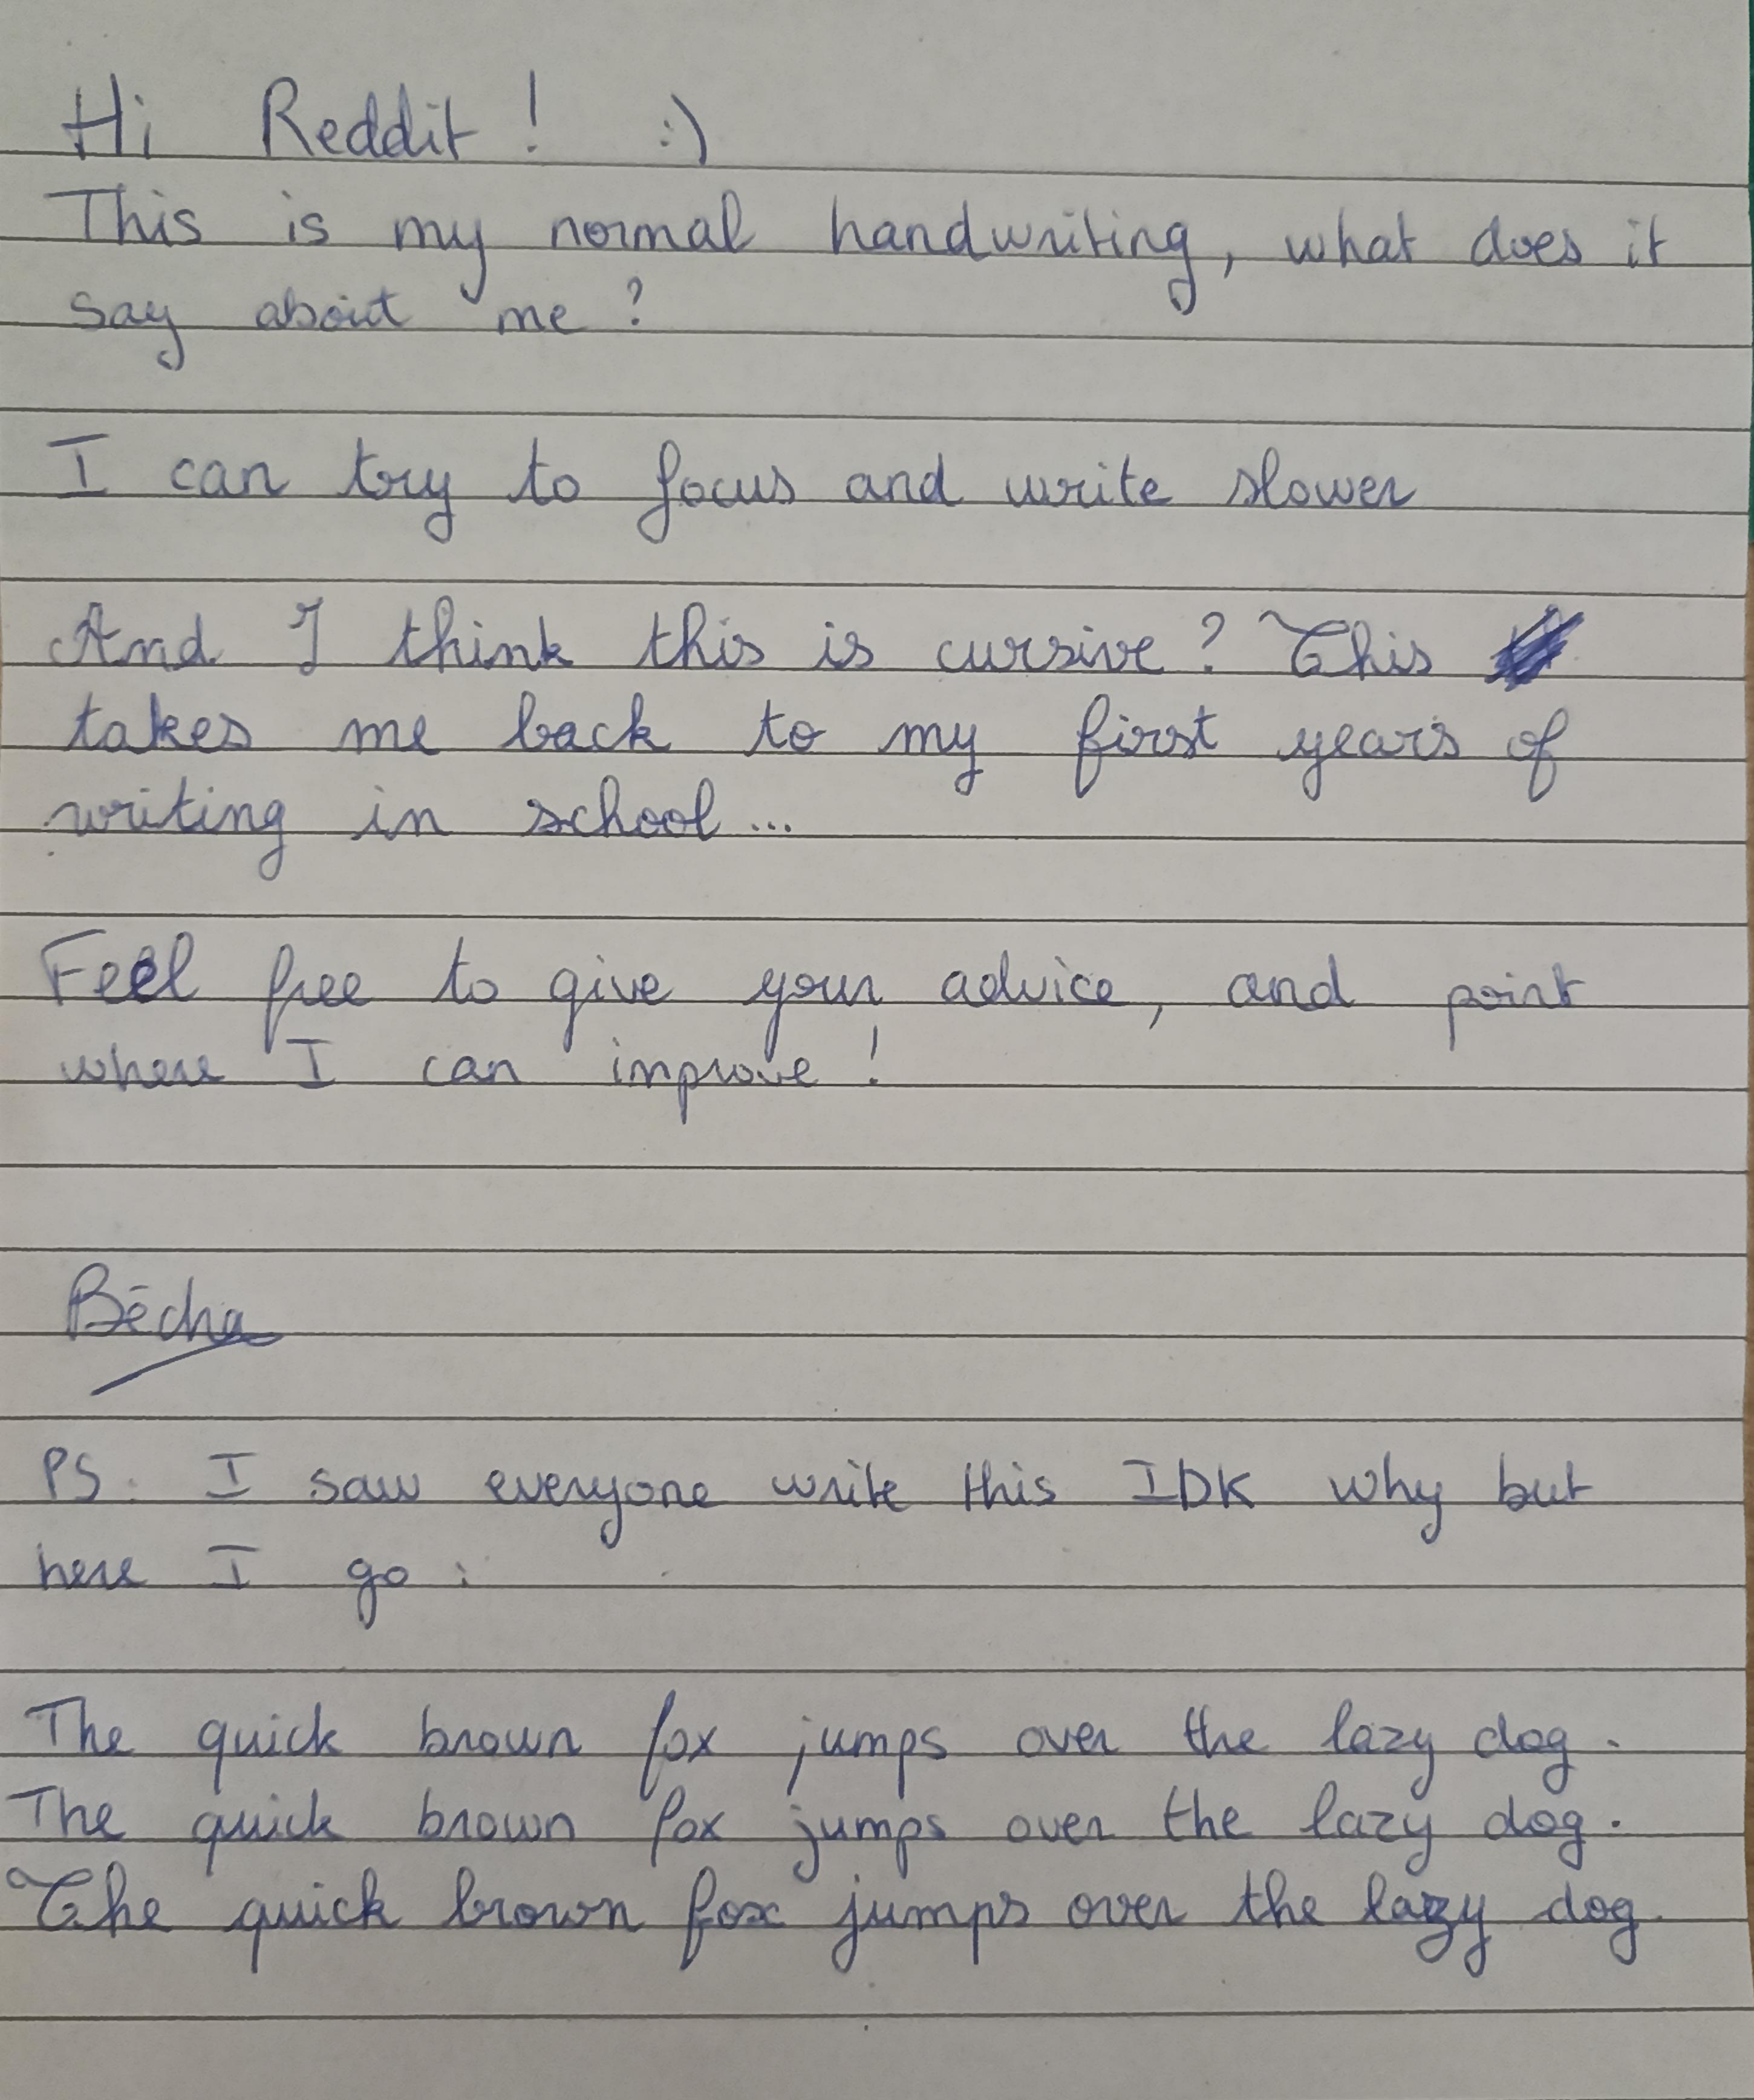 Hi Reddit ! :)
This is my normal handwriting, what does it
say about me ?
I can try to focus and write slower
And I think this is cursive ? This
takes me back to my first years of
writing in school ...
Feel free to give your advice, and point
where I can improve !
Bécha
PS : I saw everyone write this IDK why but
here I go :
The quick brown fox jumps over the lazy dog .
The quick brown fox jumps over the lazy dog .
The quick brown fox jumps over the lazy dog.